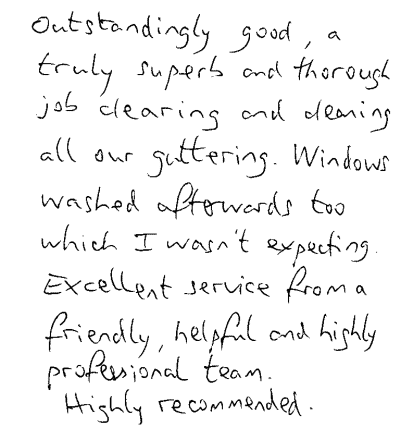 Outstandingly good, a
truly superb and thorough
job clearing and cleaning
all our guttering. Windows
washed afterwards too
which I wasn't expecting.
Excellent service from a
friendly, helpful and highly
professional team.
Highly recommended.